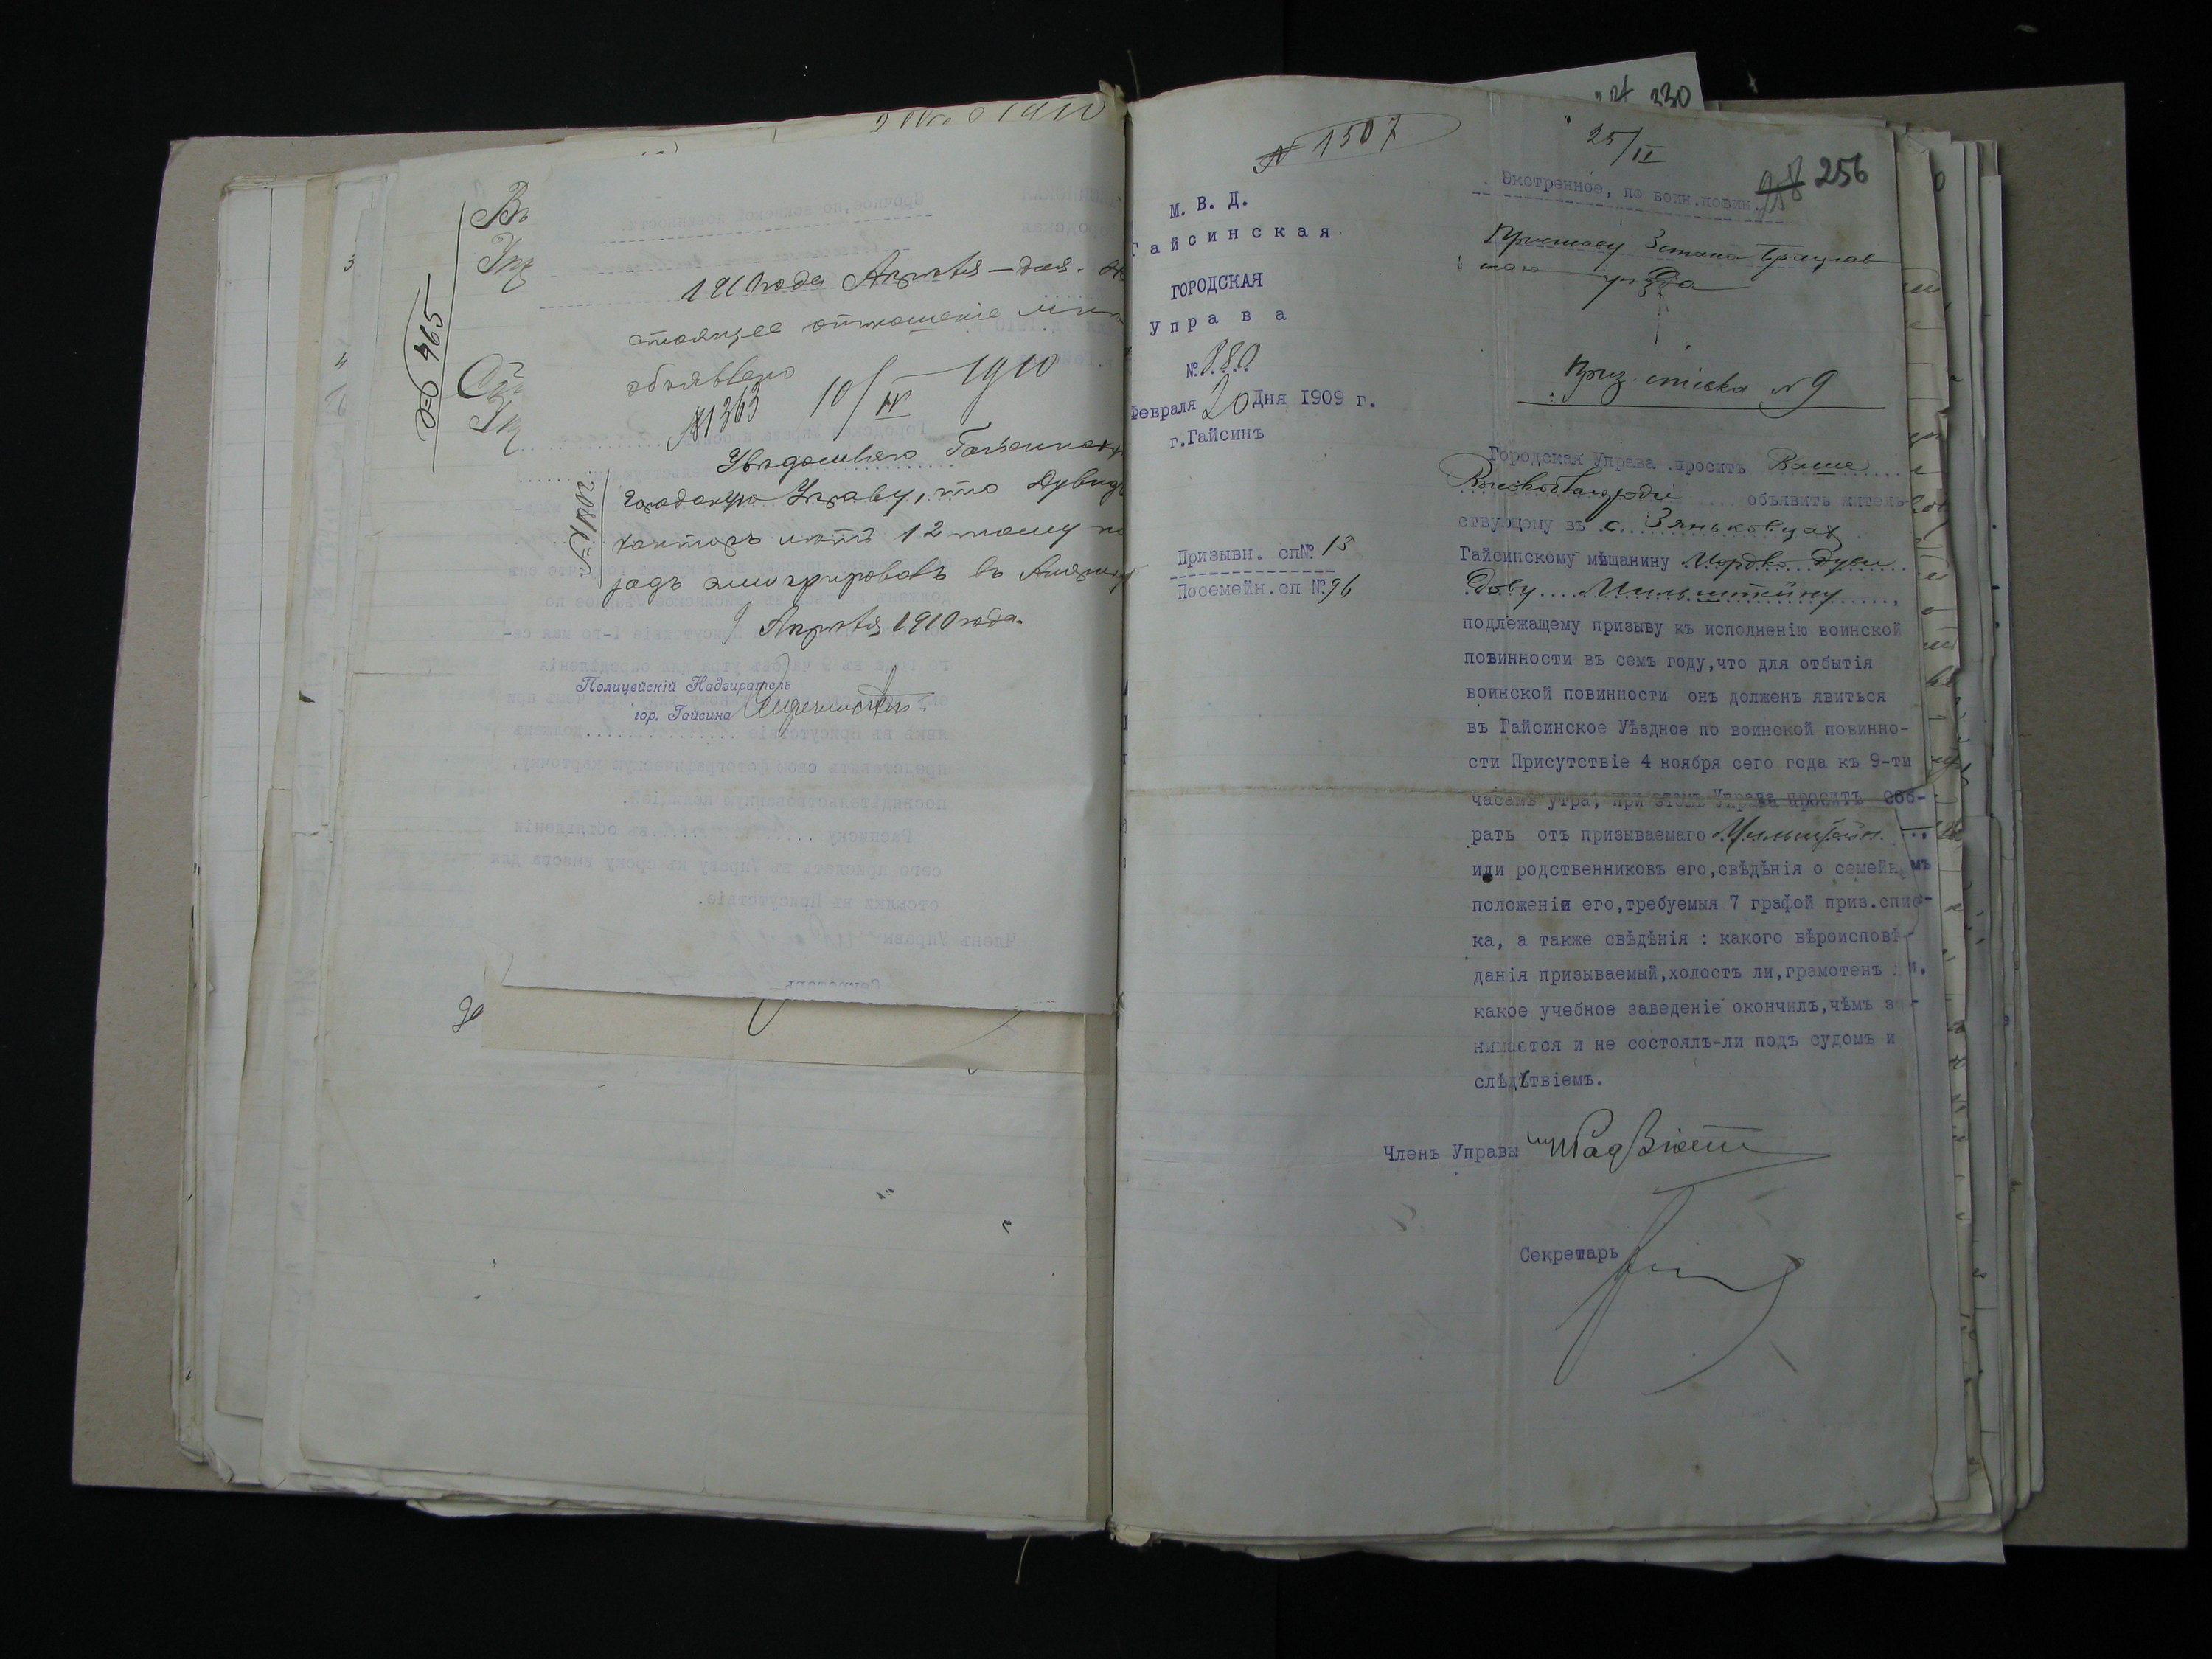 465
1910 года Апреля — дня. На
стоящее отношение мною
объявлено
№1363 10/IV 1910
Уведомляю Гайсинскую
Городскую Управу, что Дувид
Канторъ летъ 12 тому на
задъ эмигрировалъ въ Америку
9 Апреля 1910 года.
Полицейскій Надзиратель
гор. Гайсина
330
№ 1507
25/II
958 256
Экстренное, по воин.повин.
М. В. Д.
Гайсинская
ГОРОДСКАЯ
Управа
№ 880
Февраля 20 Дня 1909 г.
г.Гайсинъ
Приставу 3 стана Брацлав
скаго уѣзда
Приз. списка № 9
Призывн. сп№ 13
Посемейн.сп №96
Городская Управа проситъ Ваше
Высокоблагородіе объявить житель-
ствующему въ с. Зяньковцах
Гайсинскому мѣщанину Мордко Дуви
Дову Мильштейну,
подлежащему призыву къ исполненію воинской
повинности въ семъ году,что для отбытія
воинской повинности онъ долженъ явиться
въ Гайсинское Уѣздное по воинской повинно-
сти Присутствіе 4 ноября сего года къ 9-ти
часамъ утра; при этомъ Управа проситъ соб-
рать отъ призываемаго Мильштейн.
или родственниковъ его,свѣдѣнія о семейномъ
положеніи его,требуемыя 7 графой приз.спис-
ка, а также свѣдѣнія : какого вѣроисповѣ-
данія призываемый,холостъ ли,грамотенъ ли,
какое учебное заведеніе окончилъ,чѣмъ за-
нимается и не состоялъ-ли подъ судомъ и
слѣдствіемъ.
Членъ Управы
Секретарь